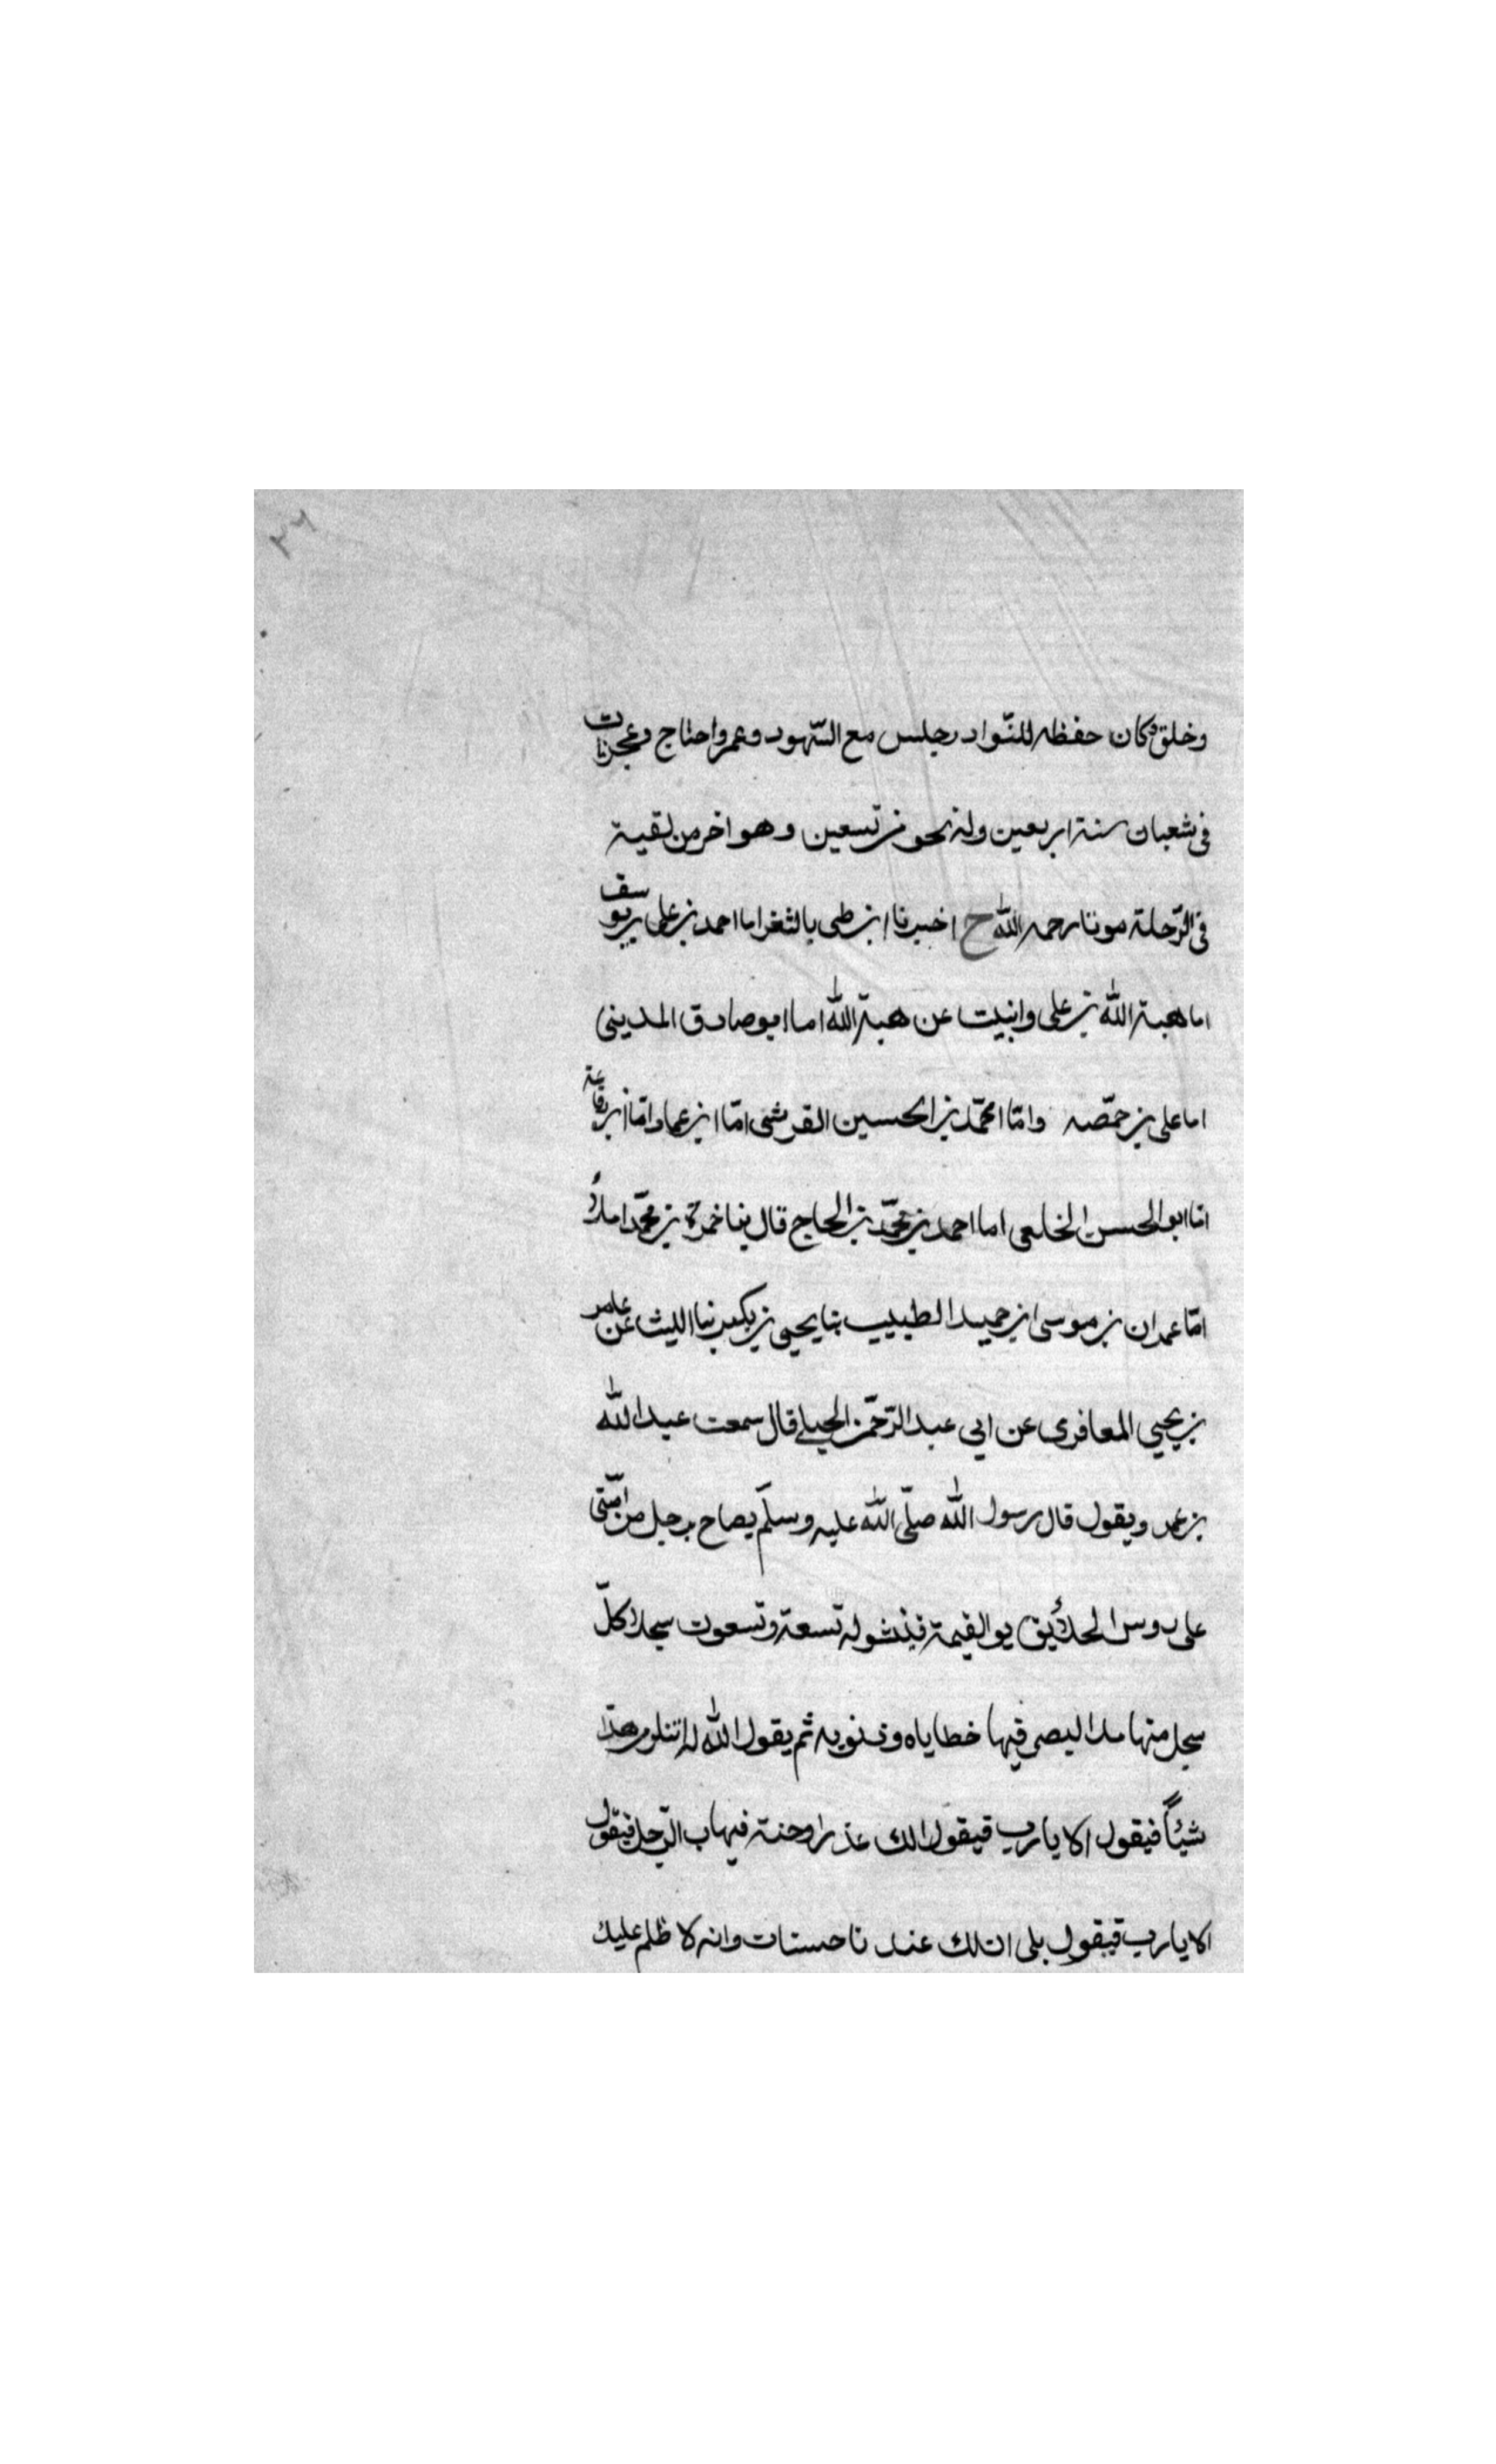 ٢٢
وخلق وكان حفظه للنواد رجلس مع الشهود وعمر واحتاج وعجز مات
فى شعبان سنة اربعين وله نحو من تسعين وهو اخر من لقيته
فى الرّحلة موتا رحمه الله ح اخبرنا ابن طى بالثغر اما احمد بن على بن يوسف
اما هبة الله بن على وانبيت عن هبة الله اما ابو صادق المدينى
اما على بن حمّصه وامّا محمّد بن الحسين القرشى امّا ابن عماد امّا ابن رفاعة
امّا ابو الحسن الخلعى اما احمد بن محمّد بن الحاج قال ينا حمزة بن محمّد املاءً
امّا عمران بن موسى ابن حميد الطبيب بنا يحيى بن بكير بنا الليث عن عامر
بن يحيى المعافرى عن ابى عبد الرّحمن الحبلى قال سمعت عبد الله
بن عمر ويقول قال رسول الله صلّى الله عليه وسلّم يصاح برجل من امّتى
على روس الخلائيق يو القيمة فينشر له تسعة وتسعون سجلا كلّ
سجل منها مدا ليصر فيها خطاياه وذنوبه ثم يقول الله له اتنكر من هذا
شيئاً فيقول الا يا رب فيقول الك عذرا وحنة فيهاب الرّجل فيقول
الا يا رب فيقول بلى ان لك عند نا حسنات وانه لا ظلم عليك